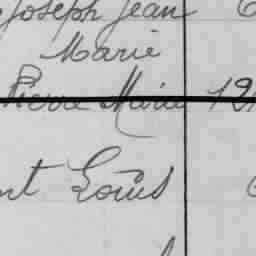 Joseph Jean
Marie
Pierre Marie
Louis